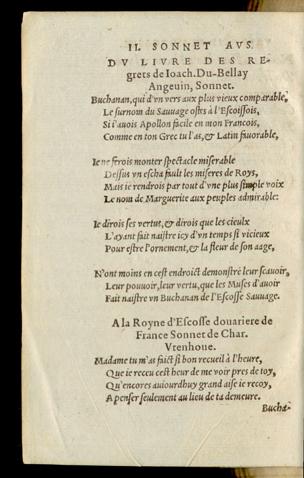 IL SONNET AVS.
DV LIVRE DES RE-
grets de Ioach. Du-Bellay
Angeuin, Sonnet.
Buchanan, qui d'vn vers aux plus vieux comparable,
Le surnom du Sauuage ostes à l'Escossois,
Si i'auois Apollon facile en mon François,
Comme en ton Grec tu l'as, & Latin fauorable,
Ie ne ferois monter spectacle miserable
Dessus vn eschafault les miseres de Roys,
Mais ie rendrois par tout d'vne plus simple voix
Le nom de Marguerite aux peuples admirable:
Ie dirois ses vertus, & dirois que les cieulx
L'ayant fait naistre icy d'vn temps si vicieux
Pour estre l'ornement, & la fleur de son aage,
N'ont moins en cest endroict demonstré leur scauoir,
Leur pouuoir, leur vertu, que les Muses d'auoir
Fait naistre vn Buchanan de l'Escosse Sauuage.
A la Royne d'Escosse douariere de
France Sonnet de Char.
Vtenhoue.
Madame tu m'as faict si bon recueil à l'heure,
Que ie receu cest heur de me voir pres de toy,
Qu'encores auiourdhuy grand aise ie recoy,
A penser seulement au lieu de ta demeure.
Bucha-